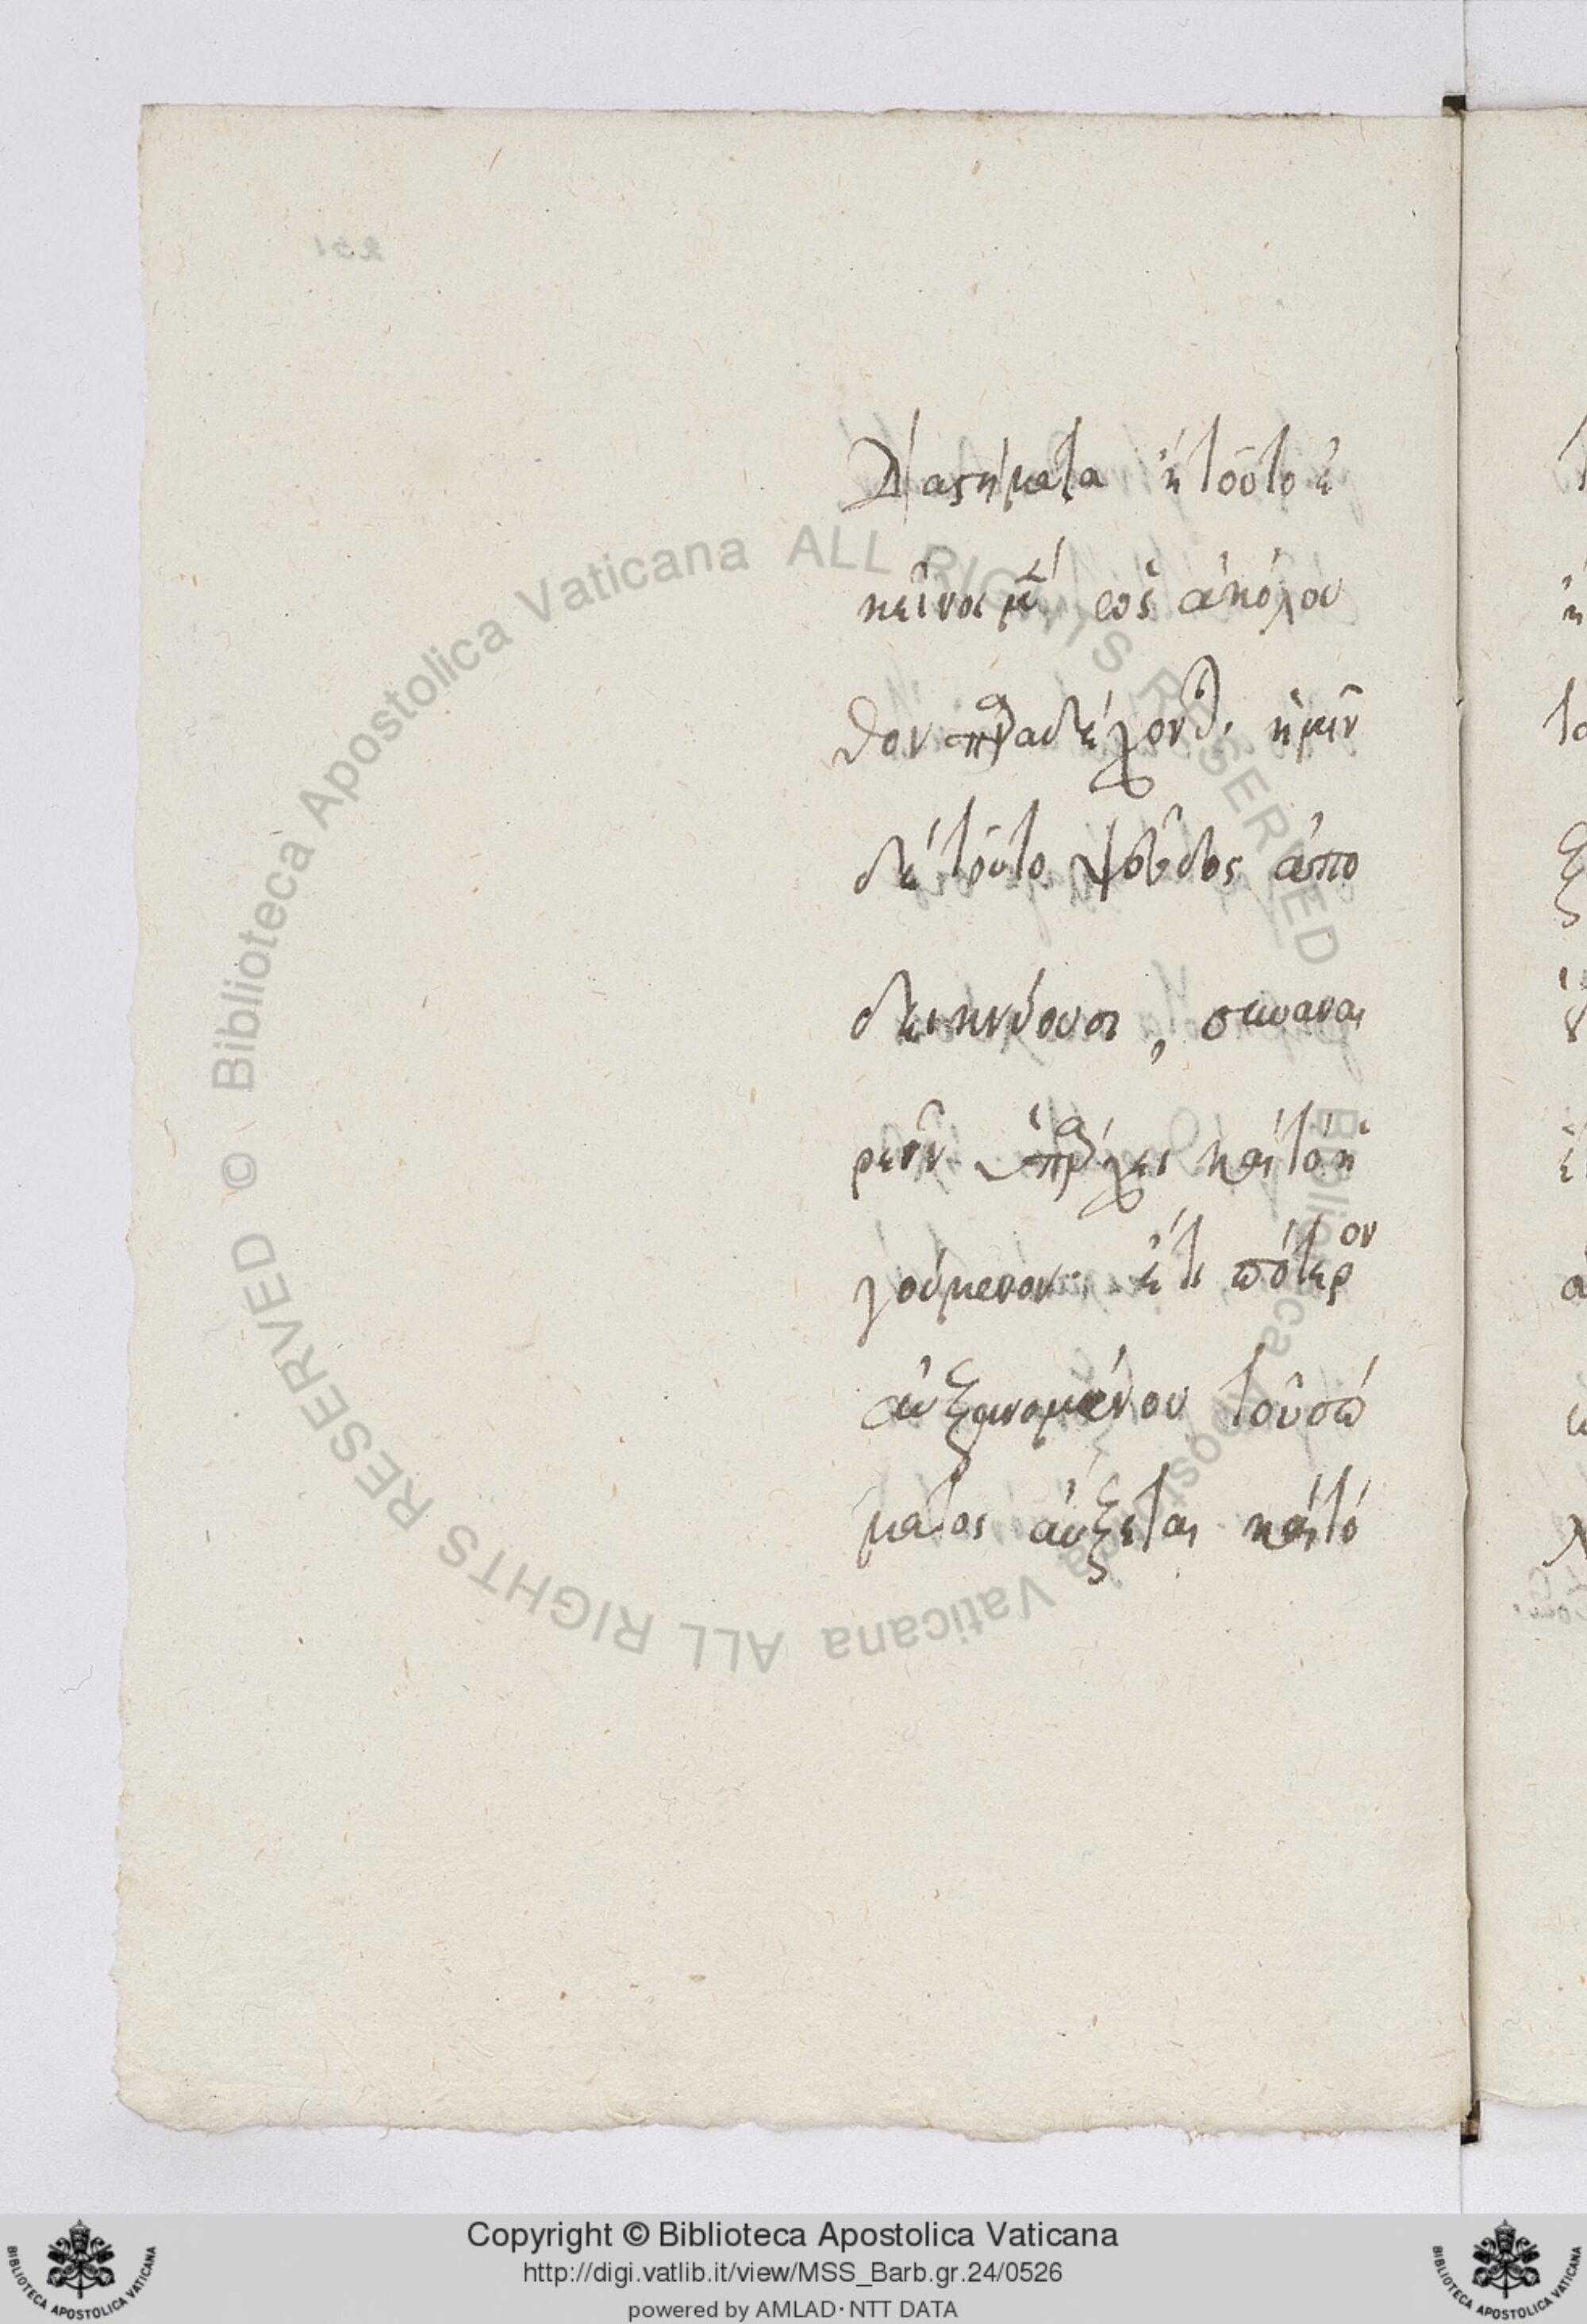 διαστήματα ἢ τοῦτο ἐ
κεῖνα μὲν ὡς ἀκόλου
θον παραδέχονται ἡμῖν
δὲ τοῦτο ψεῦδος ἀπο
δεικνύουσι, συναναι
ρεῖν ὑπάρχει καὶ τὸ ἡ
γούμενον. ἔτι πότερον
αὐξανομένου τοῦ σώ
ματος αὔξεται καὶ τὸ
Copyright © Biblioteca Apostolica Vaticana
http://digi.vatlib.it/view/MSS_Barb.gr.24/0526
powered by AMLAD·NTT DATA
© Biblioteca Apostolica Vaticana ALL RIGHTS RESERVED
Biblioteca Apostolica Vaticana ALL RIGHTS RESERVED
BIBLIOTECA APOSTOLICA VATICANA
BIBLIOTECA APOSTOLICA VATICANA